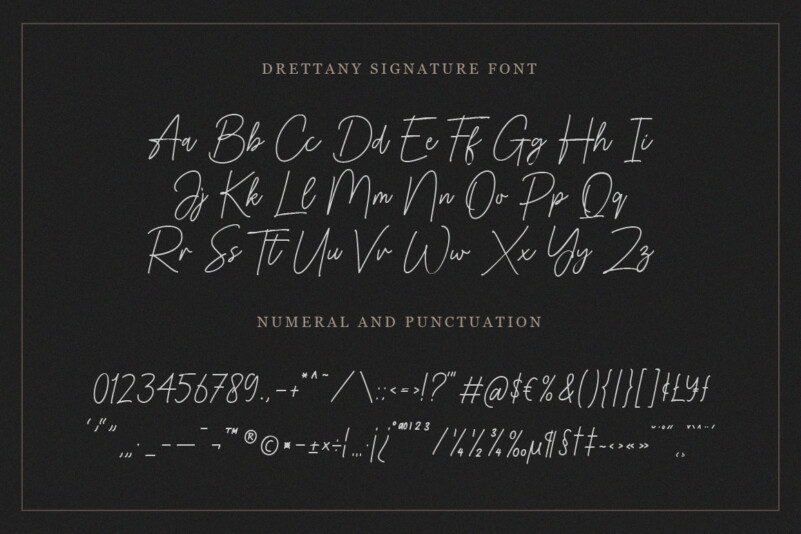 DRETTANY SIGNATURE FONT
Aa Bb Cc Dd Ee Ff Gg Hh Ii
Jj Kk Ll Mm Nn Oo Pp Qq
Rr Ss Tt Uu Vv Ww Xx Yy Zz
NUMERAL AND PUNCTUATION
0123456789.,-+*^~/\:;<=>!?'"#@$€%&(){|}[]¢£¥ƒ
‘‚“„ ‚„·_-—¯¬™®©¤–±×÷¦…·¡¿°ªº123⁄¼½¾‰µ¶§†‡~‹›«»